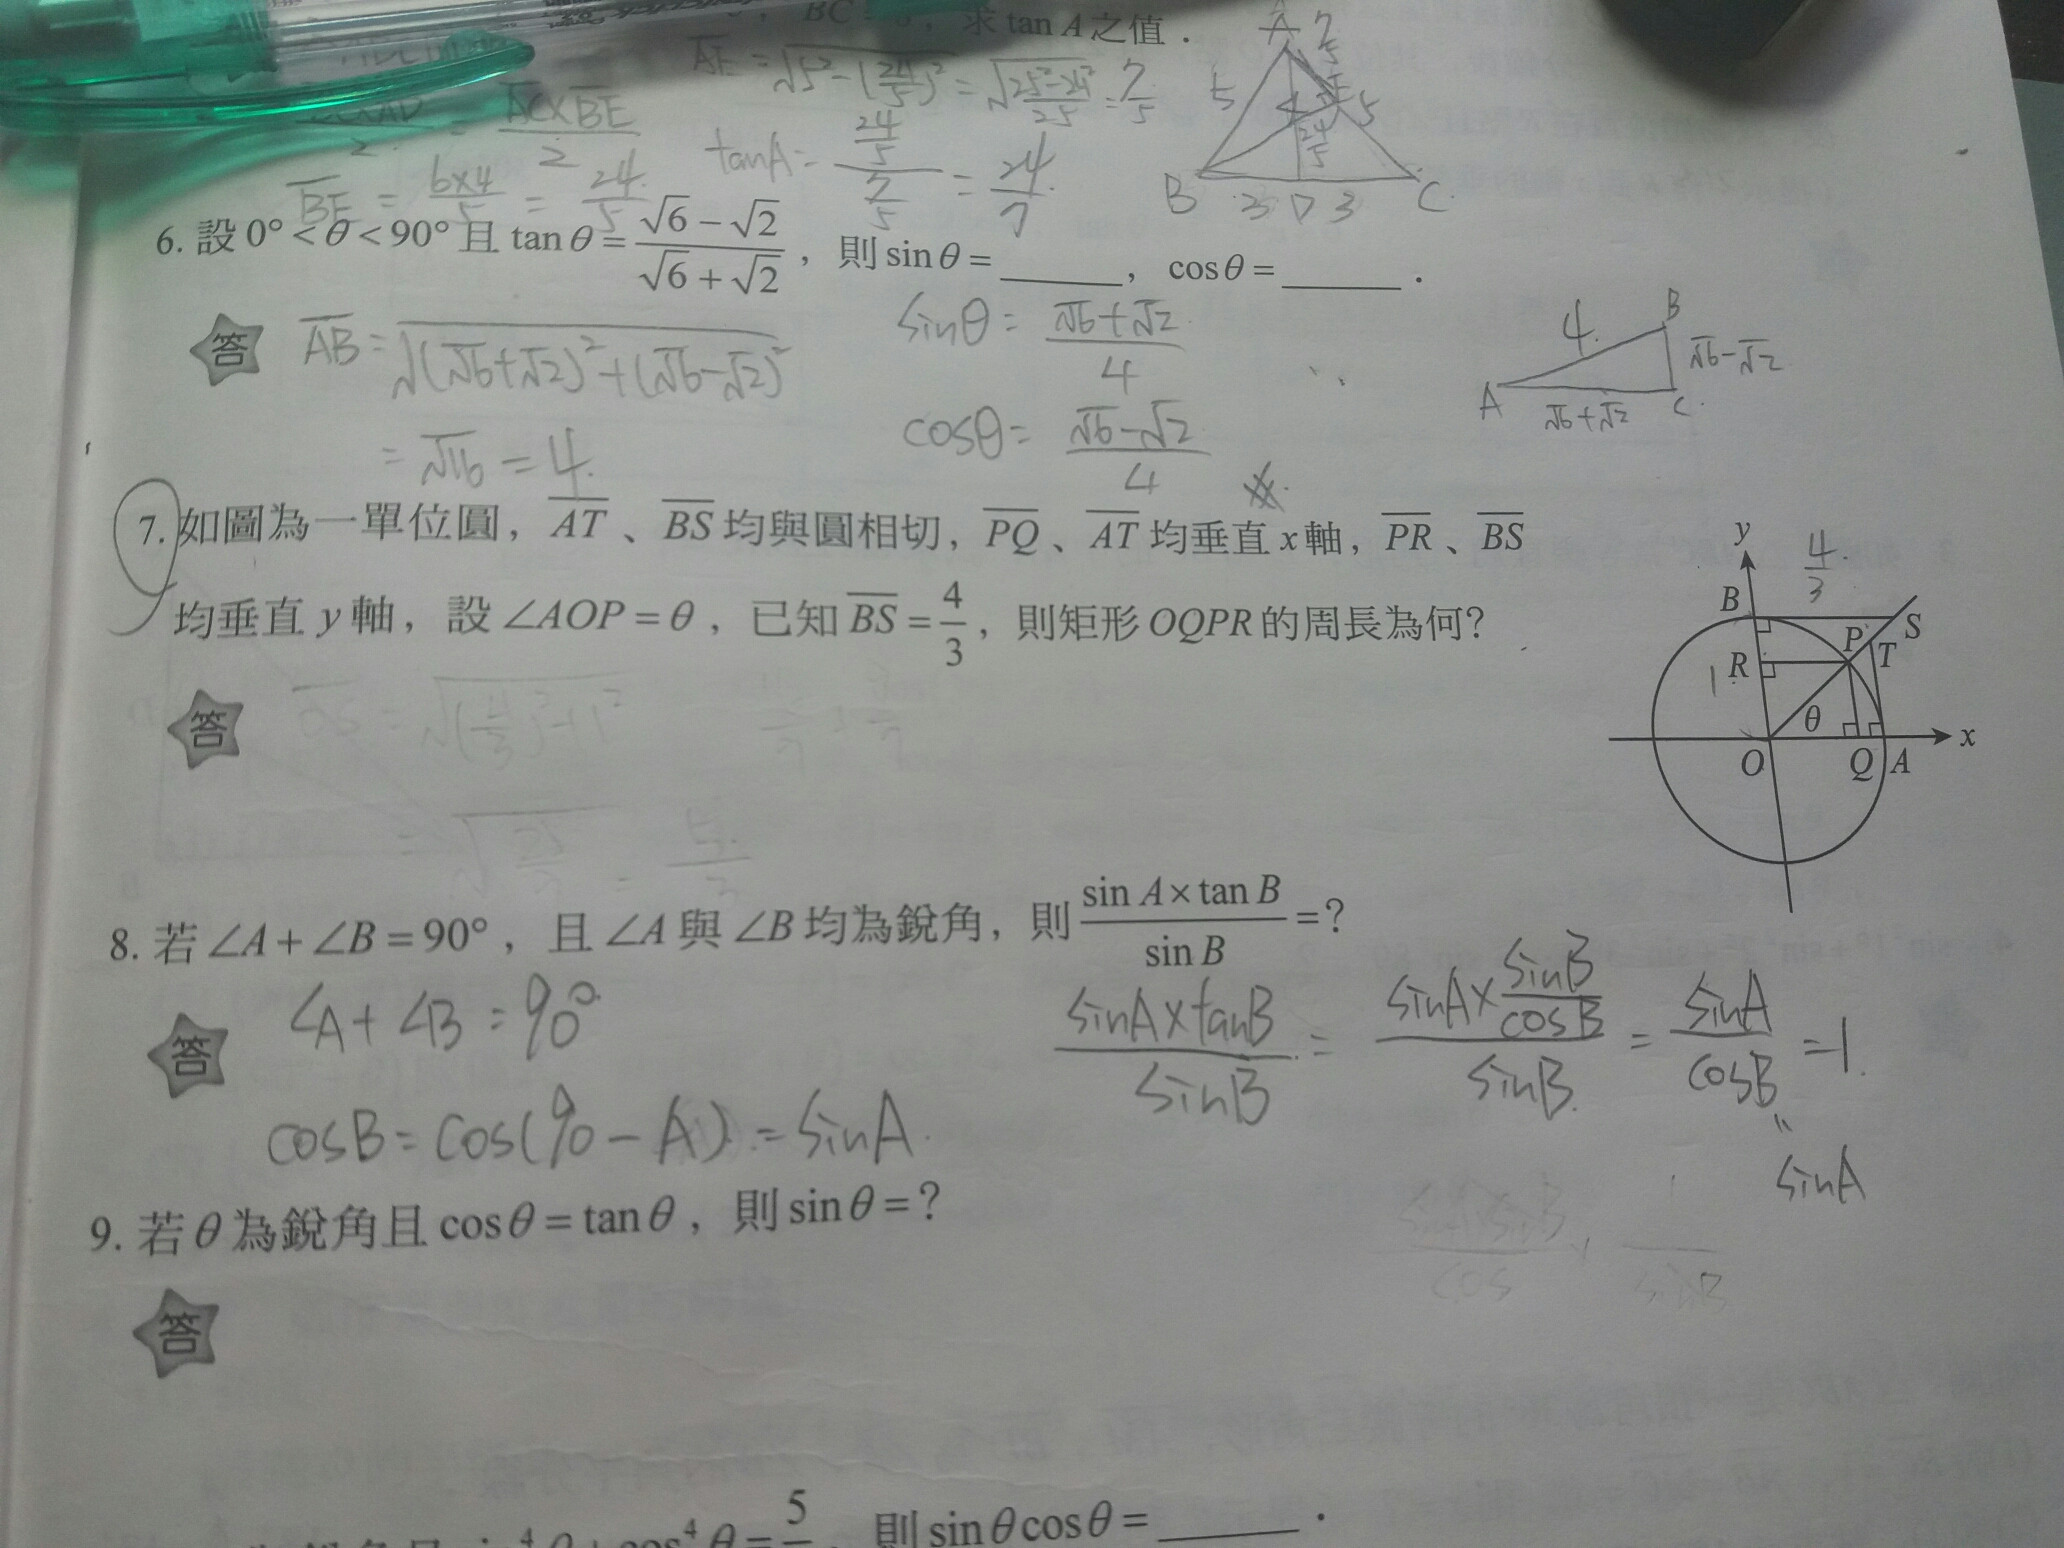 求 tan A 之值．
A̅E̅ = √(5² − (24/5)²) = √((25² − 24²)/25) = 7/5
A̅C̅×B̅E̅ / 2
B̅E̅ = 6×4/5 = 24/5
tanA = (24/5)/(7/5) = 24/7
A 7/5
5 4 5
24/5
B 3 D 3 C
6. 設 0° < θ < 90° 且 tan θ = (√6 − √2)/(√6 + √2)，則 sin θ = ______，cos θ = ______．
答
A̅B̅ = √((√6+√2)² + (√6−√2)²)
= √16 = 4.
sinθ = (√6+√2)/4
cosθ = (√6−√2)/4
4. B
√6−√2
A √6+√2 C
7. 如圖為一單位圓，A̅T̅、B̅S̅ 均與圓相切，P̅Q̅、A̅T̅ 均垂直 x 軸，P̅R̅、B̅S̅
均垂直 y 軸，設 ∠AOP = θ，已知 B̅S̅ = 4/3，則矩形 OQPR 的周長為何？
答
O̅S̅ = √((4/3)² + 1²)
y 4/3
B S
P T
R
1
θ
x
O Q A
8. 若 ∠A + ∠B = 90°，且 ∠A 與 ∠B 均為銳角，則 (sin A × tan B)/sin B = ?
答
∠A + ∠B = 90°
cosB = cos(90 − A) = sinA
(sinA×tanB)/sinB = (sinA×(sinB/cosB))/sinB = sinA/cosB = 1
"
sinA
9. 若 θ 為銳角且 cos θ = tan θ，則 sin θ = ?
答
則 sin θ cos θ = ______．